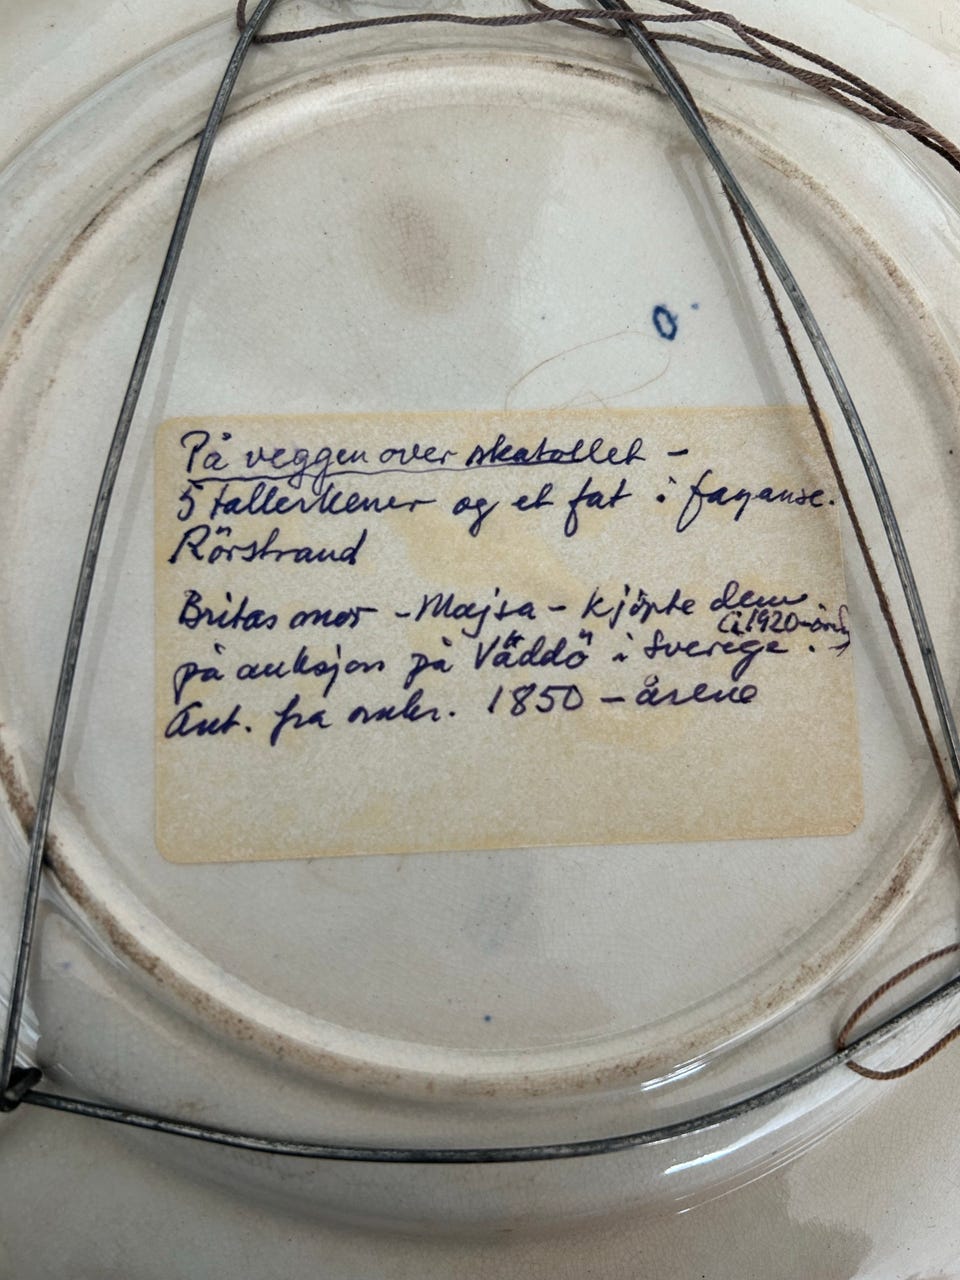 0
På veggen over skatollet -
5 tallerkener og et fat i fayanse.
Rörstrand
Britas mor - Majsa - kjöpte dem
(i 1920-åra)
på auksjon på Väddö i Sverige.
Ant. fra omkr. 1850-årene